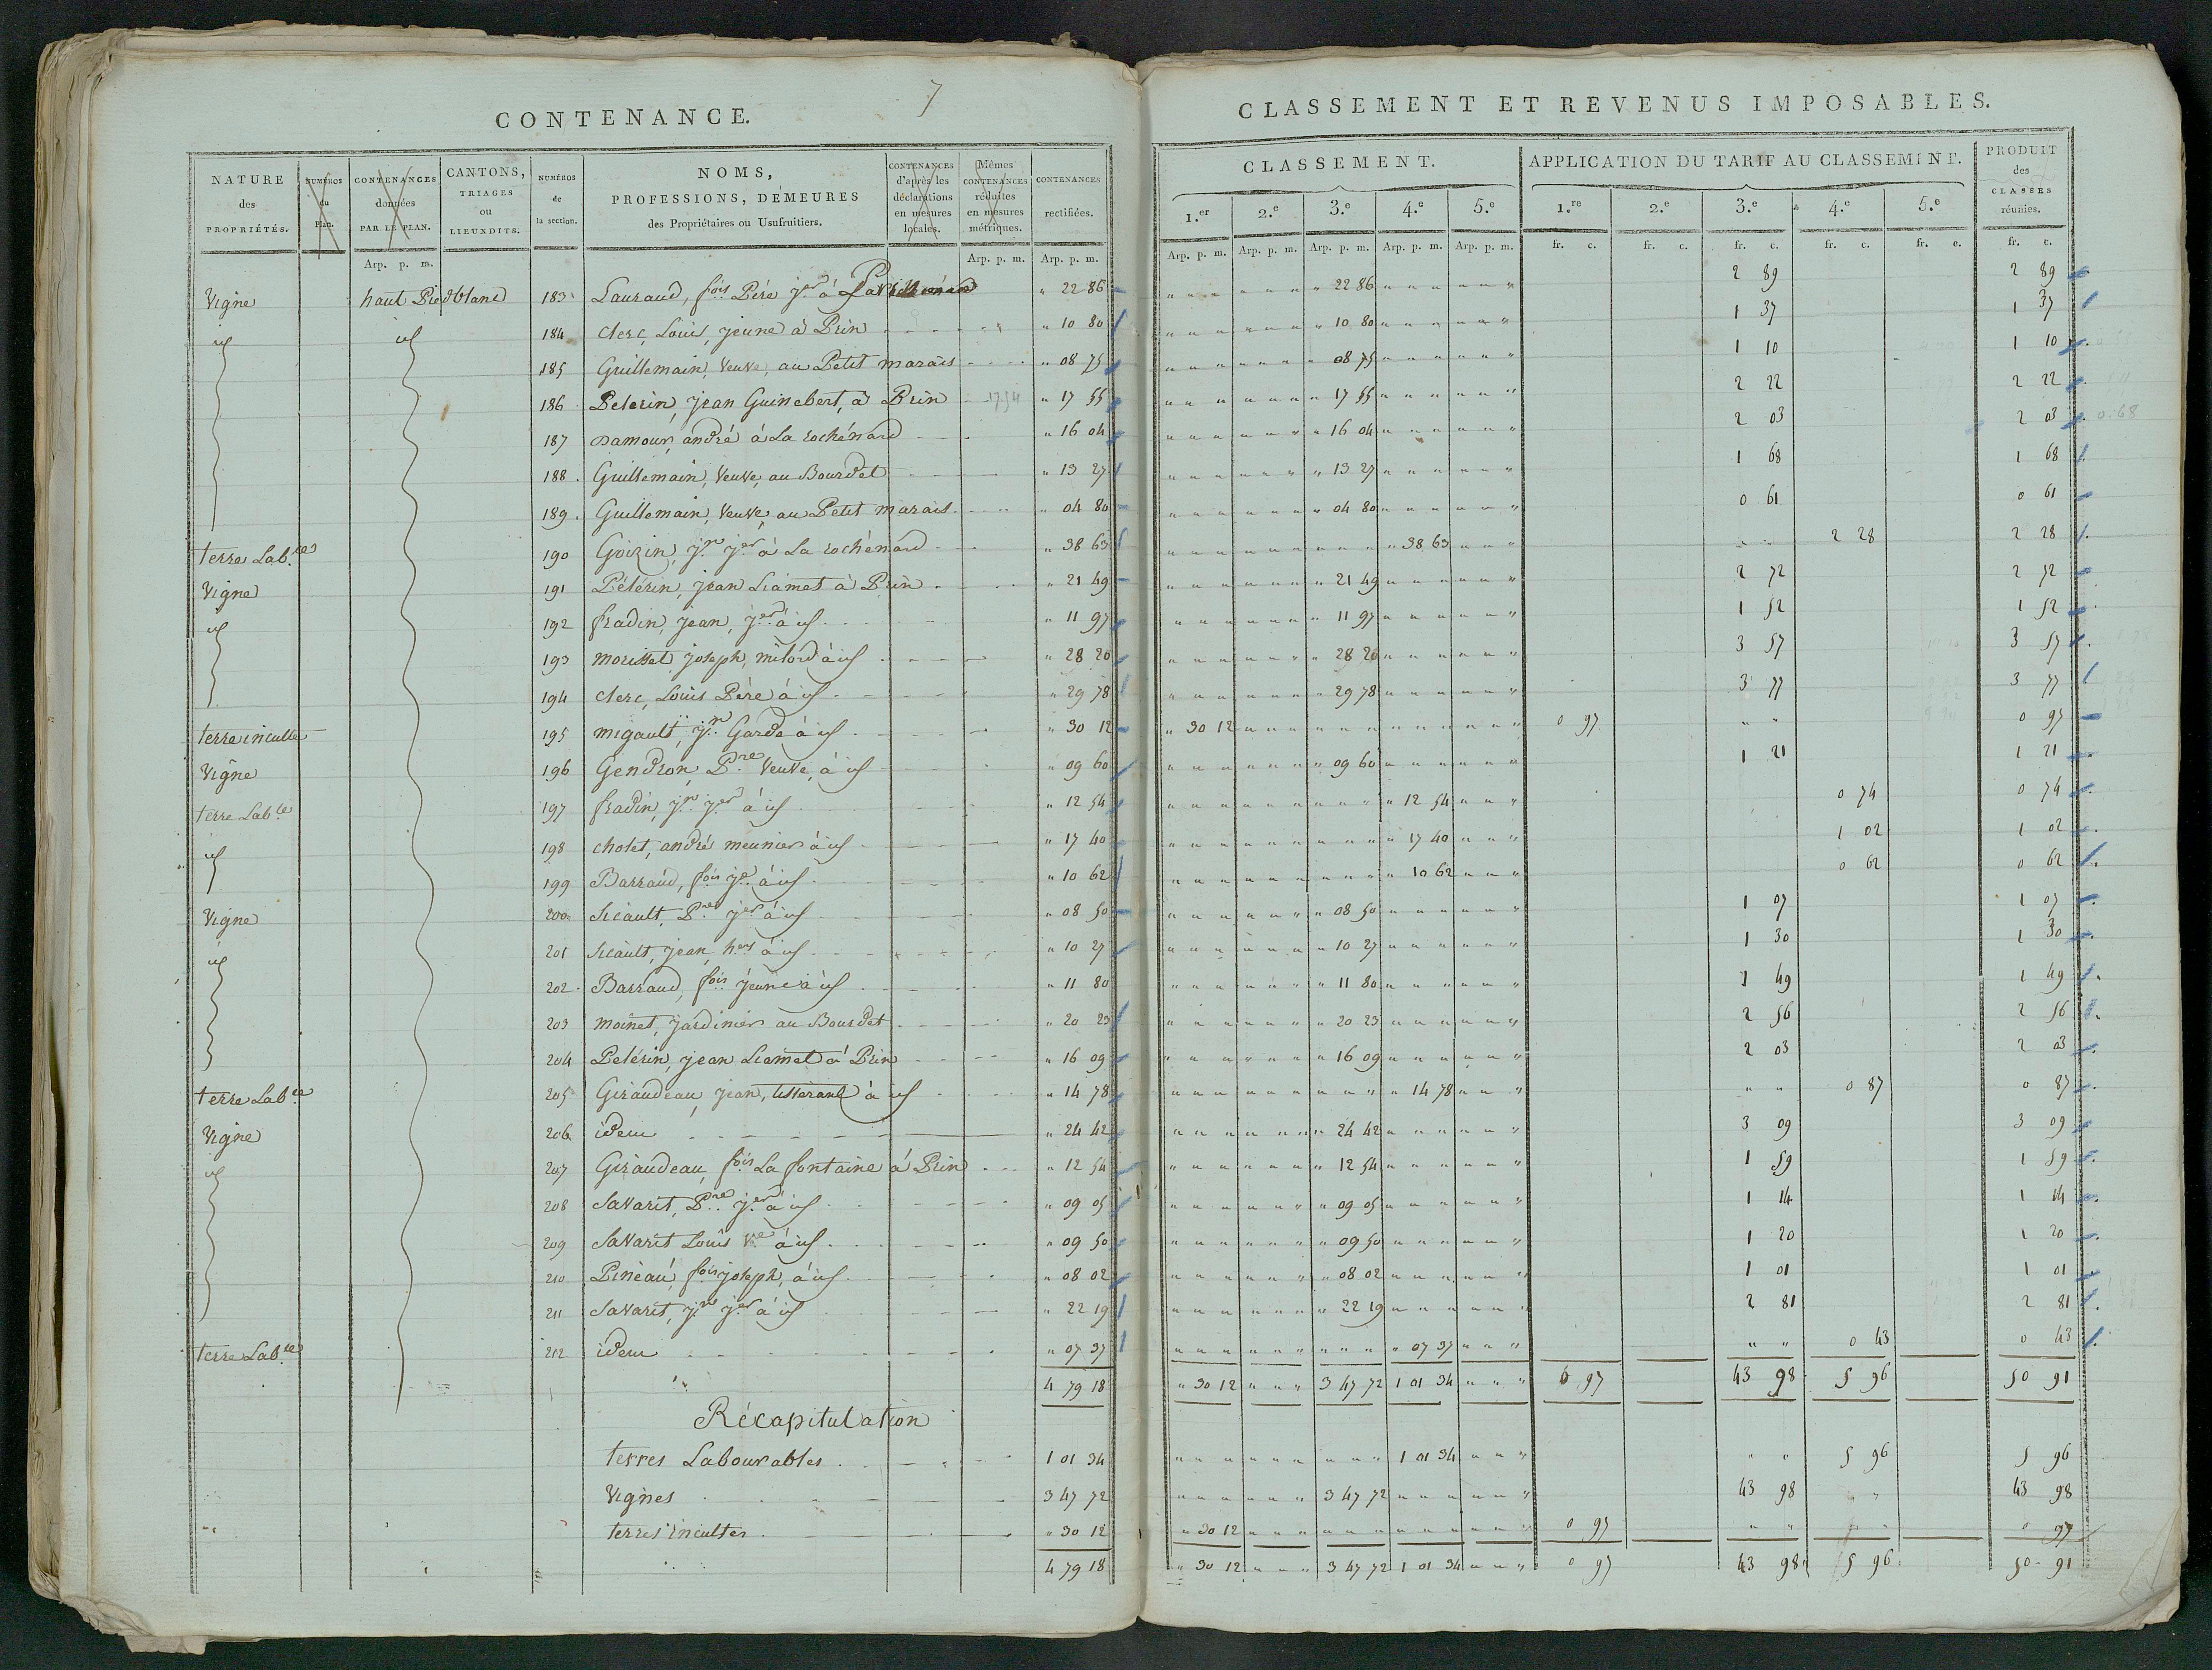 7
CONTENANCE.
NATURE des PROPRIÉTÉS. NUMÉROS du Plan. CONTENANCES données PAR LE PLAN. CANTONS, TRIAGES ou LIEUXDITS. NUMÉROS de la section. NOMS, PROFESSIONS, DEMEURES des Propriétaires ou Usufruitiers. CONTENANCES d'après les déclarations en mesures locales. Mêmes CONTENANCES réduites en mesures métriques. CONTENANCES rectifiées.
Arp. p. m. Arp. p. m. Arp. p. m.
Vigne haut Piedblanc 183 Lauraud, fois Père jer à " 22 86
id id 184 Clerc, Louis, jeune à Prin " 10 80
185 Guillemain, Veuve, au Petit marais " 08 75
186 Pelerin, jean Guinebert, à Prin 17.54 " 17 55
187 Damour, andré à La rochénard " 16 04
188 Guillemain, Veuve, au Bourdet " 13 27
189 Guillemain, Veuve, au Petit marais " 04 80
terre Lable 190 Goizin, jn jer à La rochénard " 38 63
Vigne 191 Pélérin, jean Liamet à Prin " 21 49
id 192 fradin, jean, jer à id " 11 97
193 morisset joseph, milord à id " 28 20
194 Clerc, Louis Père à id " 29 78
terre inculte 195 migault, jn Garde à id " 30 12
Vigne 196 Gendron, Pre Veuve, à id " 09 60
terre Lable 197 fradin, jn jer à id " 12 54
id 198 Cholet, andré meunier à id " 17 40
199 Barraud, fois jer à id " 10 62
Vigne 200 Sicault, Pre jer à id " 08 50
id 201 Sicault, jean, hers à id " 10 27
202 Barraud, fois jeune à id " 11 80
203 moinet, jardinier au Bourdet " 20 23
204 Pelérin, jean Liamet à Prin " 16 09
terre Lable 205 Giraudeau, jean, tisserant à id " 14 78
Vigne 206 idem " 24 42
id 207 Giraudeau, fois La fontaine à Prin " 12 54
208 Savarit, Pre jer à id " 09 05
209 Savarit Louis Ve à id " 09 50
210 Pineau, fois joseph, à id " 08 02
211 Savarit, jn jer à id " 22 19
terre Lable 212 idem " 07 37
4 79 18
Récapitulation
terres Labourables 1 01 34
Vignes 3 47 72
terres incultes " 30 12
4 79 18
CLASSEMENT ET REVENUS IMPOSABLES.
CLASSEMENT. APPLICATION DU TARIF AU CLASSEMENT. PRODUIT des CLASSES réunies.
1.er 2.e 3.e 4.e 5.e 1.re 2.e 3.e 4.e 5.e
Arp. p. m. Arp. p. m. Arp. p. m. Arp. p. m. Arp. p. m. fr. c. fr. c. fr. c. fr. c. fr. c. fr. c.
" 22 86 2 89 2 89
" 10 80 1 37 1 37
" 08 75 1 10 1 10
" 17 55 2 22 2 22
" 16 04 2 03 2 03 0.68
" 13 27 1 68 1 68
" 04 80 0 61 0 61
" 38 63 2 28 2 28
" 21 49 2 72 2 72
" 11 97 1 52 1 52
" 28 20 3 57 3 57
" 29 78 3 77 3 77
" 30 12 0 97 " " 0 97
" 09 60 1 21 1 21
" 12 54 0 74 0 74
" 17 40 1 02 1 02
" 10 62 0 62 0 62
" 08 50 1 07 1 07
" 10 27 1 30 1 30
" 11 80 1 49 1 49
" 20 23 2 56 2 56
" 16 09 2 03 2 03
" 14 78 " " 0 87 0 87
" 24 42 3 09 3 09
" 12 54 1 59 1 59
" 09 05 1 14 1 14
" 09 50 1 20 1 20
" 08 02 1 01 1 01
" 22 19 2 81 2 81
" 07 37 " " 0 43 0 43
" 30 12 " " " 3 47 72 1 01 34 " " " 0 97 43 98 5 96 50 91
1 01 34 " " " " " 5 96 5 96
3 47 72 43 98 " 43 98
" 30 12 0 97 " " 0 97
" 30 12 " " " 3 47 72 1 01 34 " " " 0 97 43 98 5 96 50 91